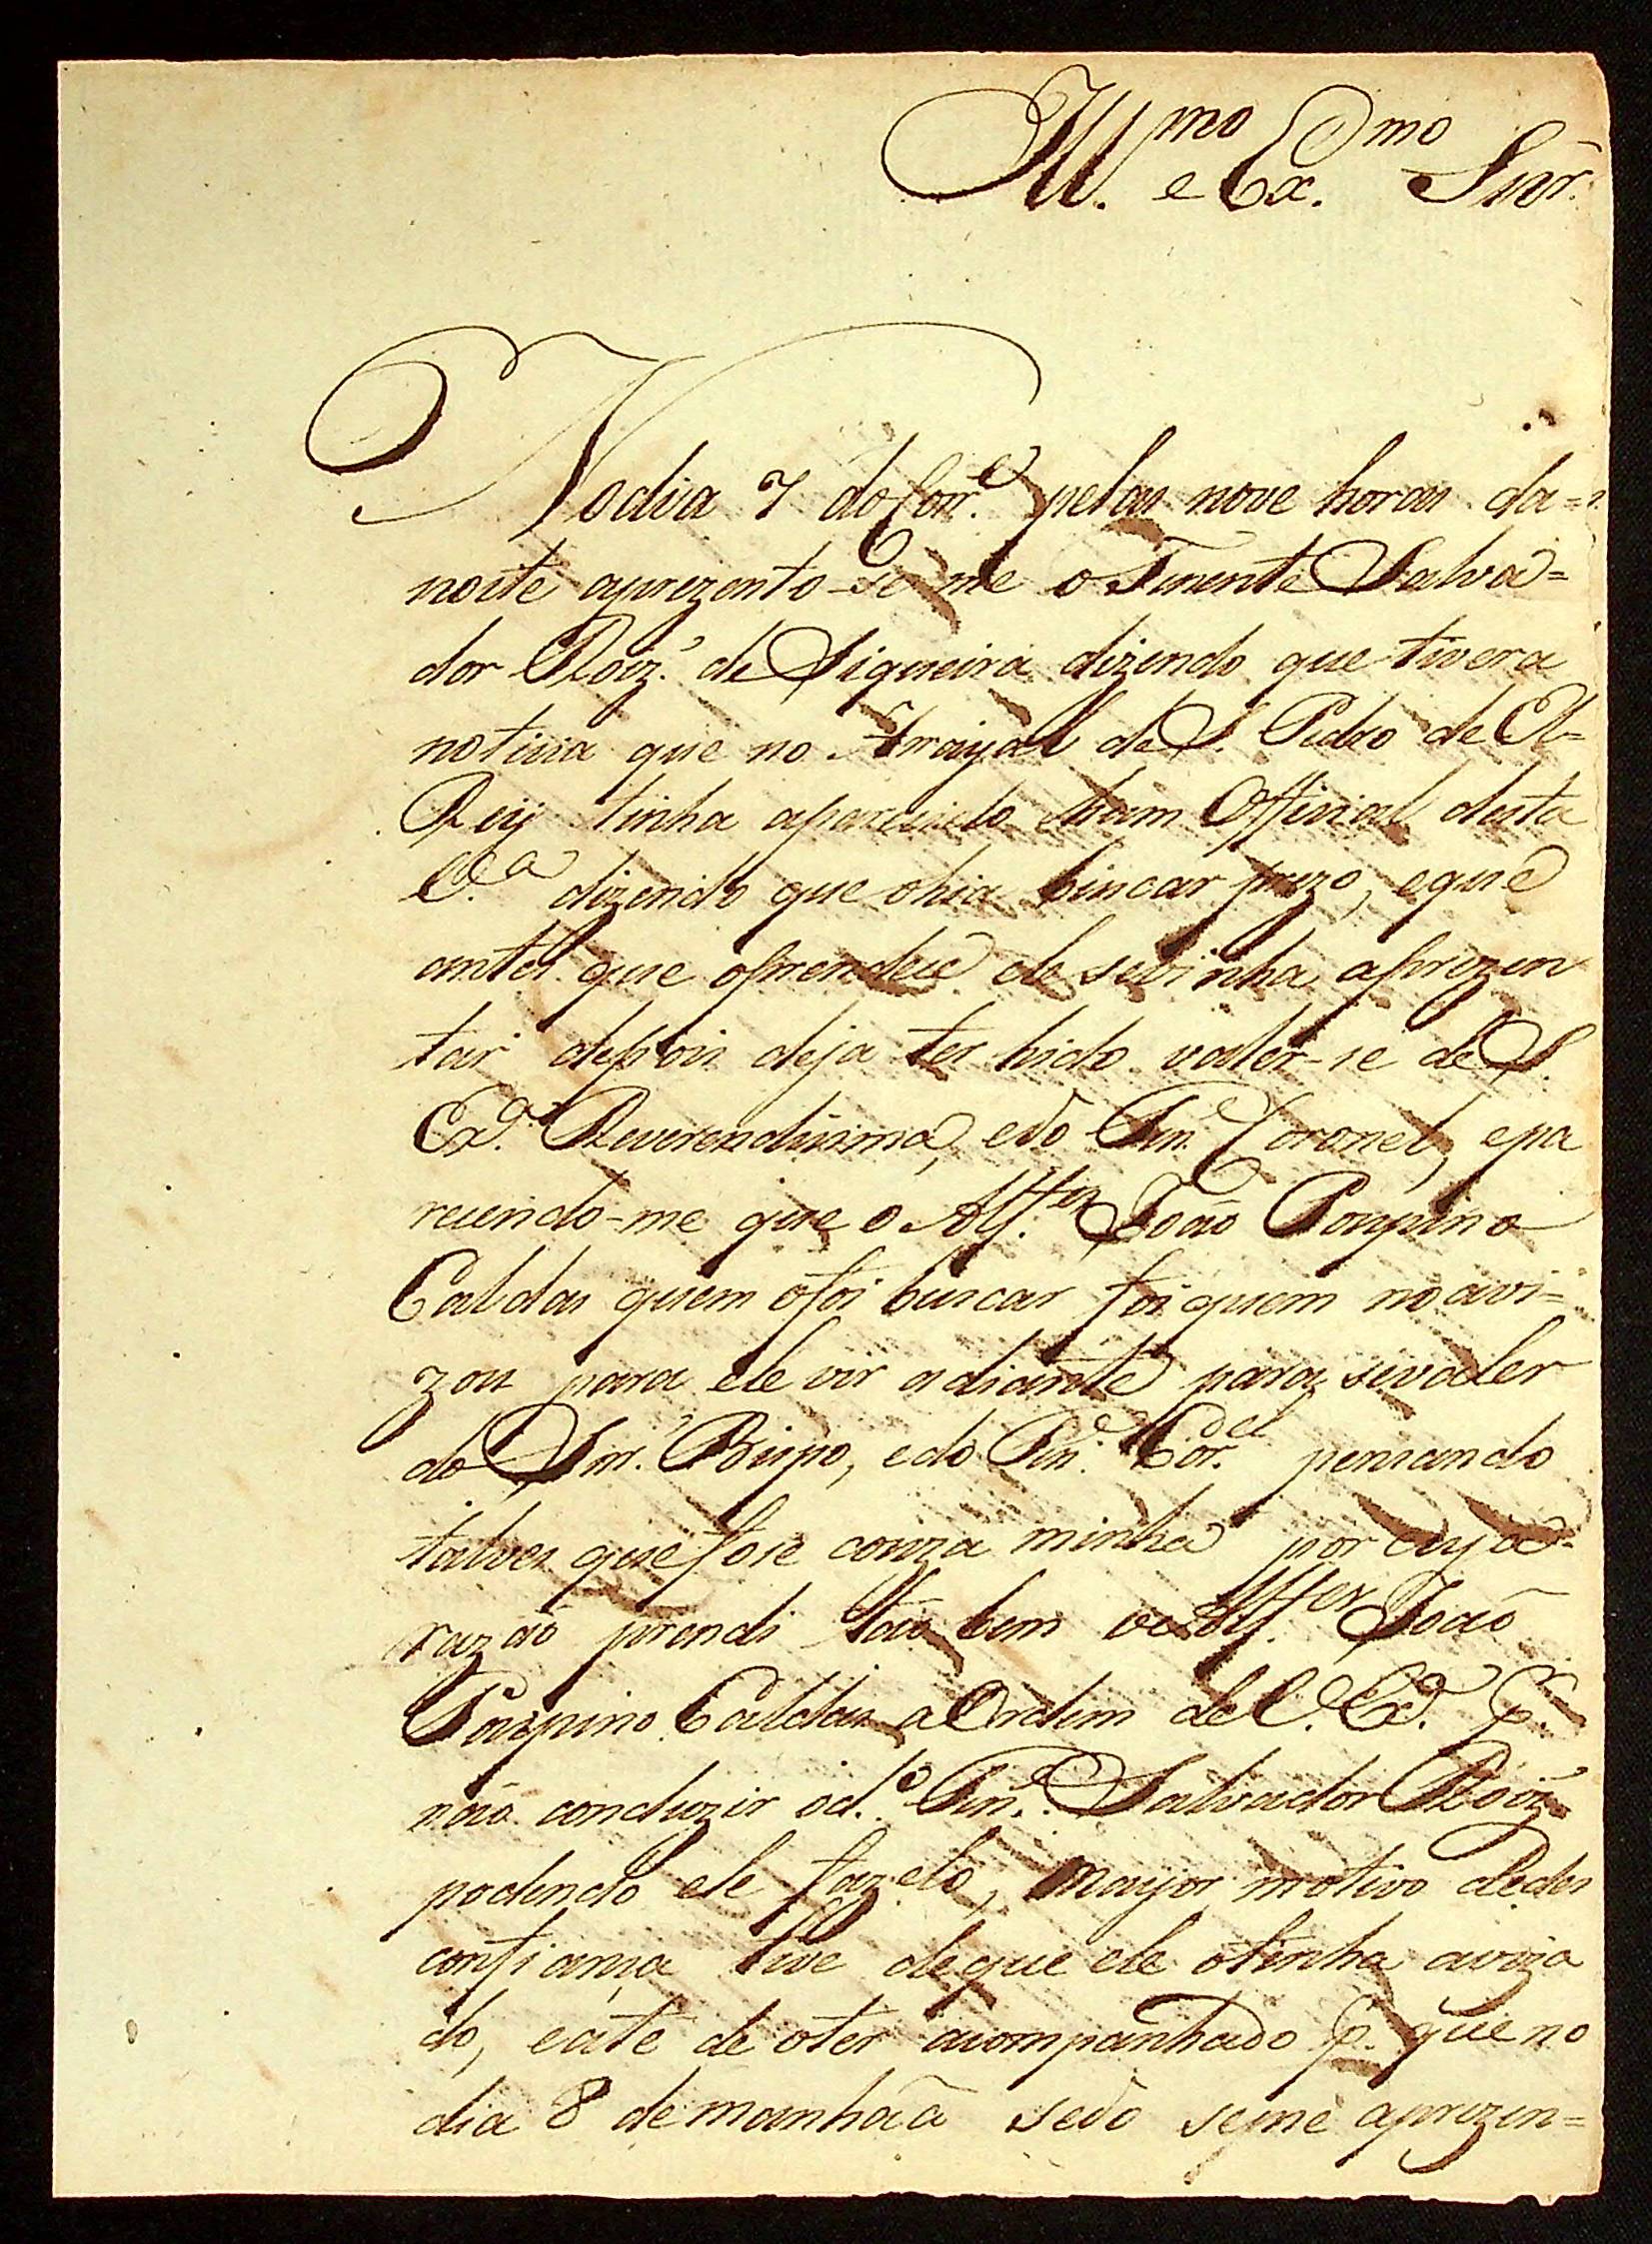 Ill.mo e Ex.mo Snõr.
No dia 7 do Corr.e pelas nove horas da=
noite aprezento-se me o Tenente Salva=
dor Roiz' de Siqueira dizendo que tivera
noticia que no Arrayal de S. Pedro de El=
Rey tinha aparecido hum Official desta
V.a dizendo que ohia buscar prezo, eque
antes que oprendese ele sevinha aprezen
tar depois deja ter hido valer-se de S.
Ex.a Reverendissima, edo Ten.e Coronel, epa
recendo-me que o Alf.es João Poupino
Caldas quem ofoi buscar foi quem no avi=
zou para ele vir adiante para sevaler
do Snr.' Bispo, edo Ten.e Cor.el pensando
talves que fose couza minha por cuja
razaõ prendi taõ bem ao Alf.es Joaõ
Poupino Caldas a Ordem de V. Ex.a p.r
naõ conduzir od.o Ten.e Salvador Roiz
podendo ele fazelo, mayor motivo dedes
confiança tive deque ele otinha aviza
do, eate de oter acompanhado p.r que no
dia 8 de manhaã sedo seme aprezen=